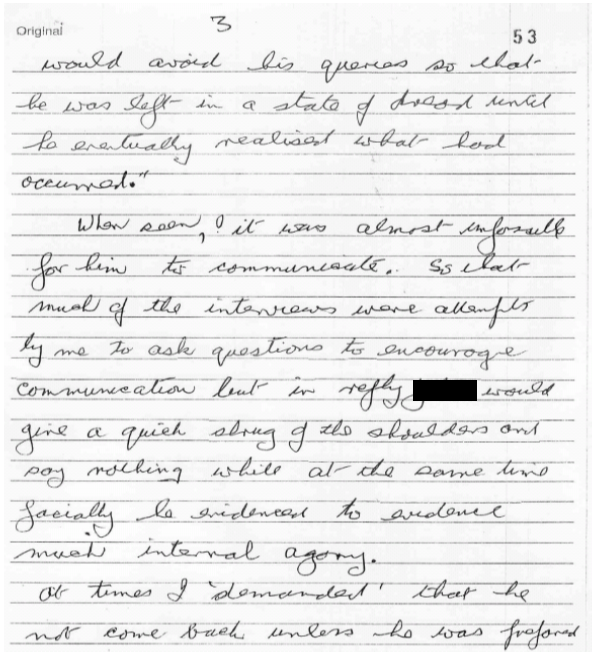 Original
3
53
would avoid his queries so that
he was left in a state of dread until
he eventually realised what had
occurred."
When seen, it was almost impossible
for him to communicate. So that
much of the interviews were attempts
by me to ask questions to encourage
communication but in reply would
give a quick shrug of the shoulders and
say nothing while at the same time
facially he evidenced to evidence
much internal agony.
At times I 'demanded' that he
not come back unless he was prepared